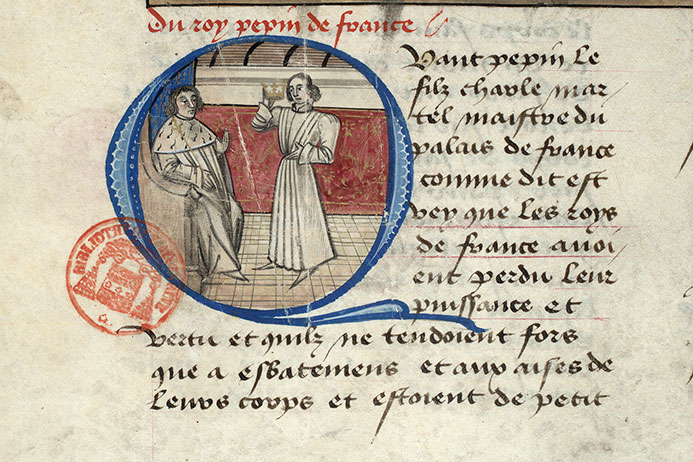 Du roy pepin de france
Quant pepin le
filz charle mar
tel maistre du
palais de france
comme dit est
vey que les roys
de france auoi
ent perdu leur
puissance et
vertu et quilz ne tendoient fors
que a esbatemens et aux aises de
leurs corps et estoient de petit